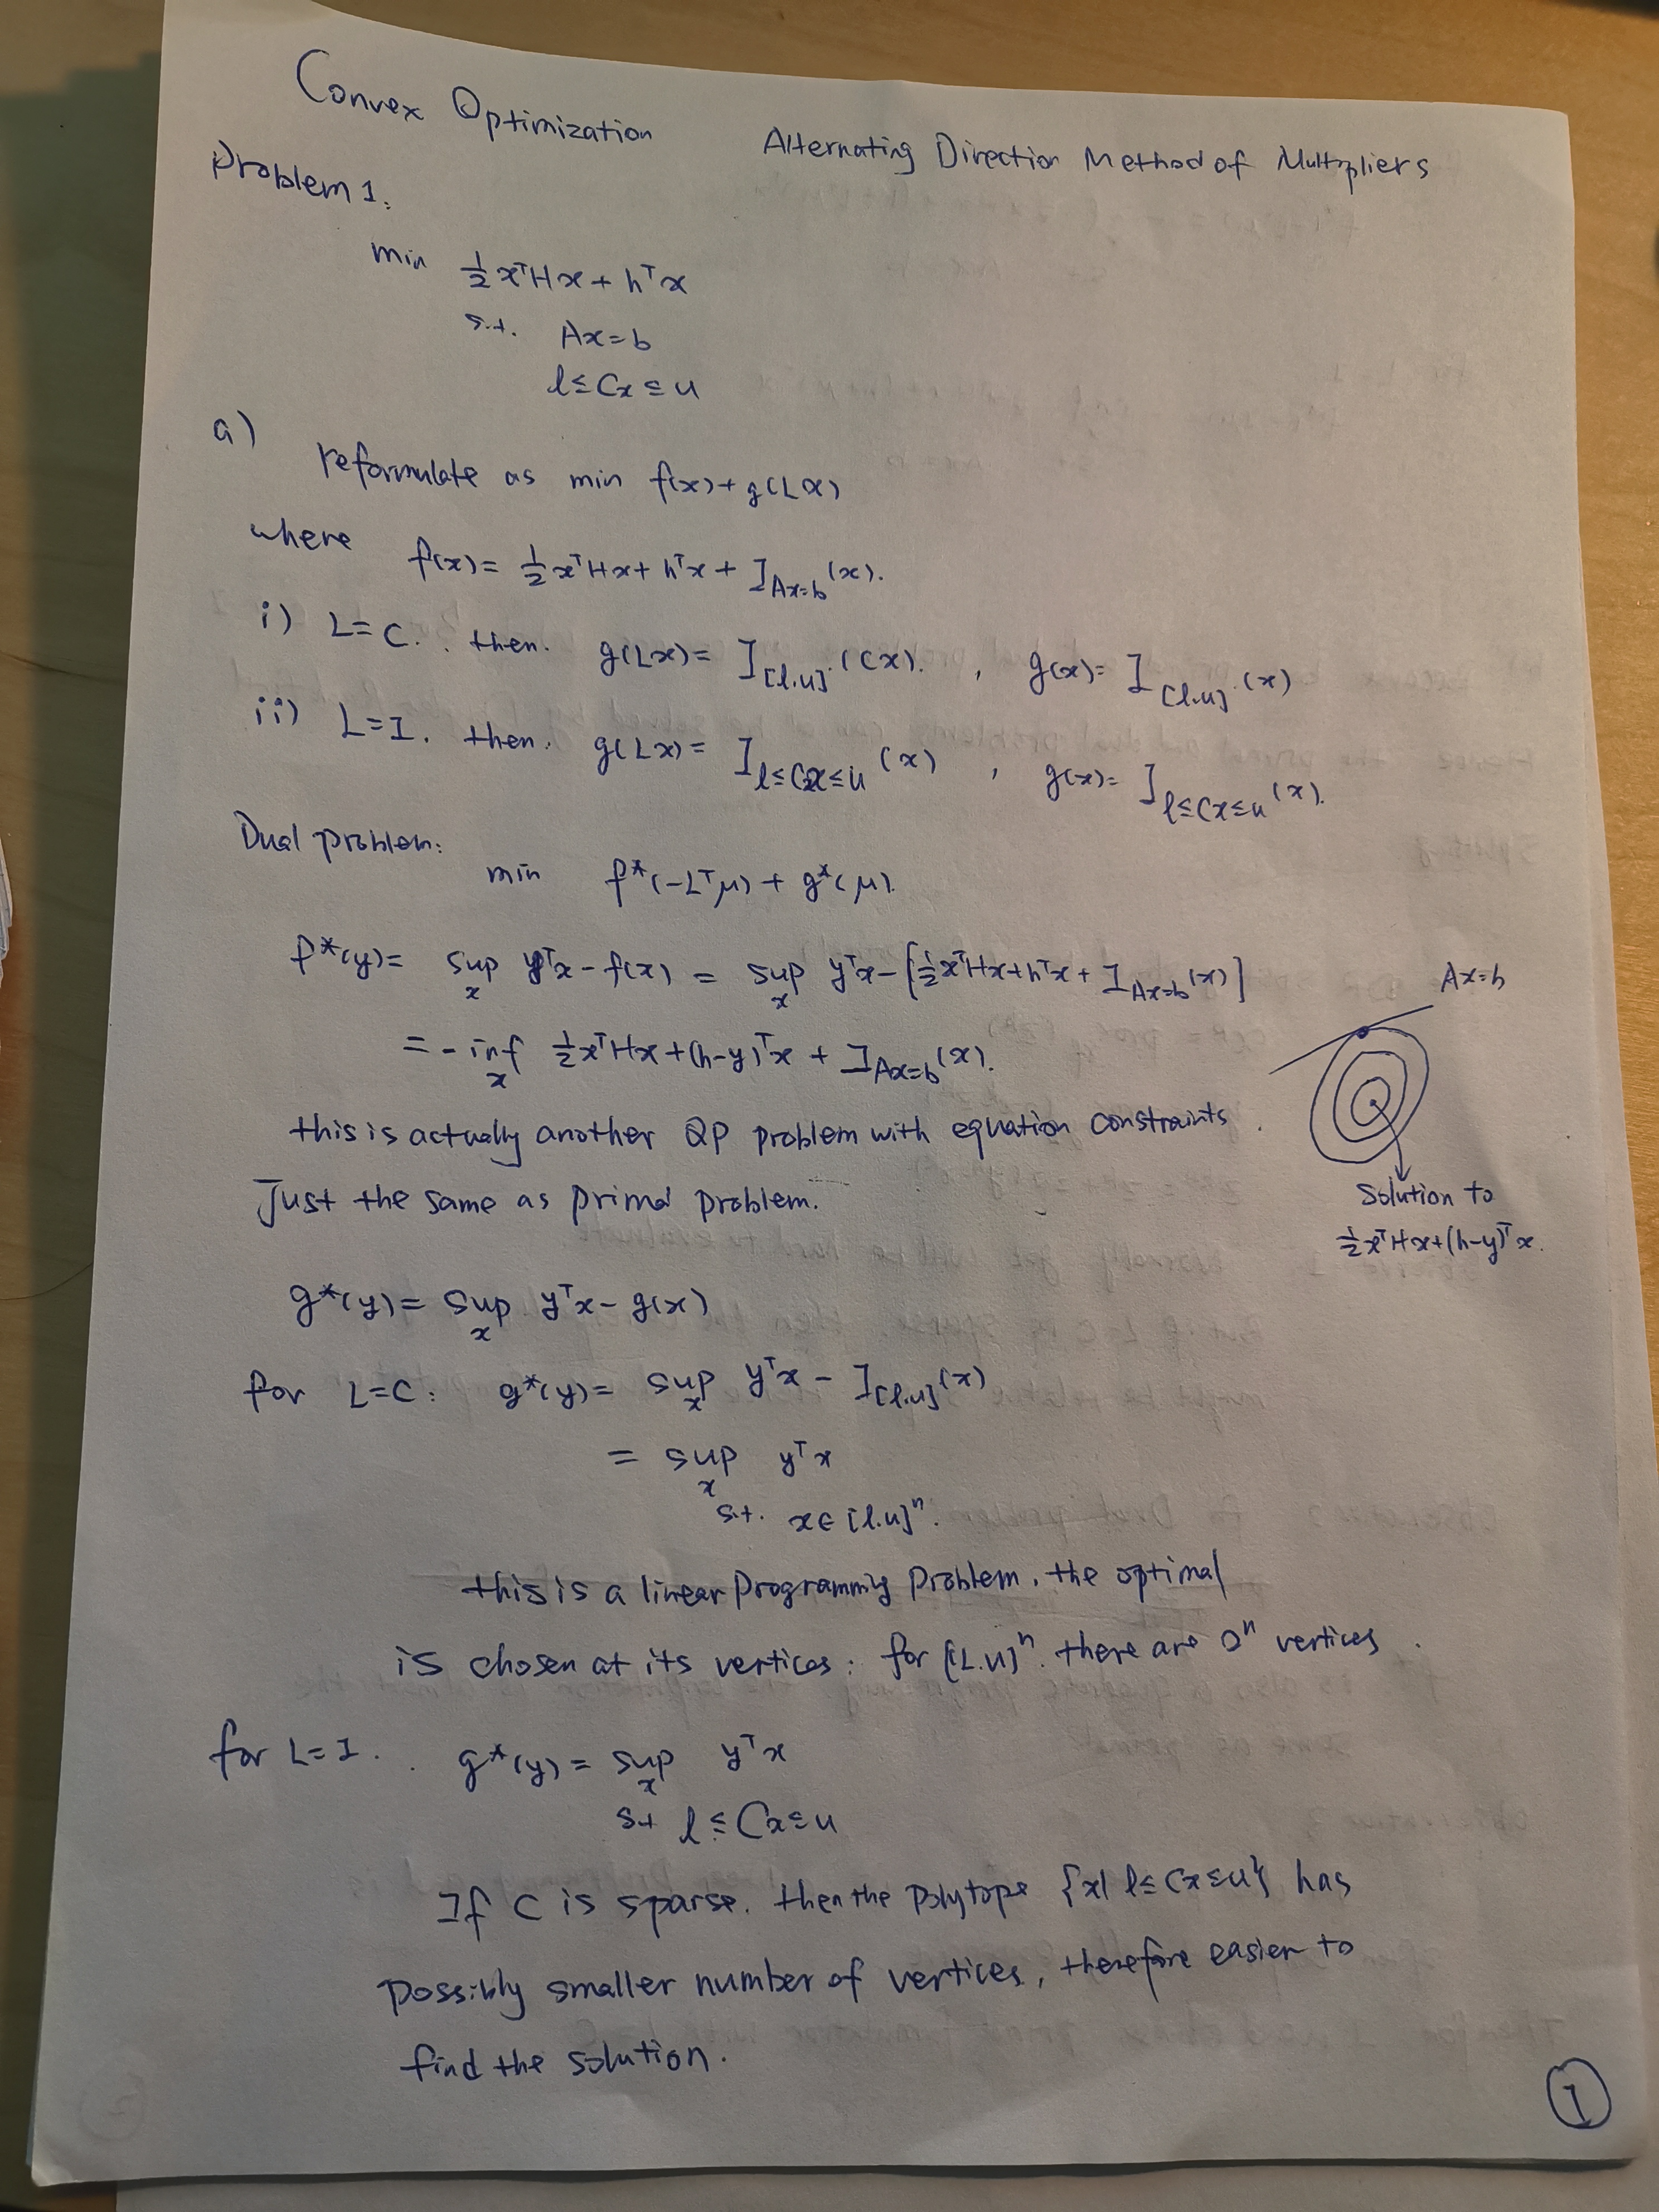 Convex Optimization Alternating Direction Method of Multipliers
Problem 1.
min ½ xᵀHx + hᵀx
s.t. Ax=b
l≤Cx≤u
a)
reformulate as min f(x)+g(Lx)
where f(x)= ½ xᵀHx + hᵀx + I_{Ax=b}(x).
i) L=C. then. g(Lx)= I_{[l.u]}(Cx). , g(x)= I_{[l.u]}(x)
ii) L=I. then. g(Lx)= I_{l≤Cx≤u}(x) , g(x)= I_{l≤Cx≤u}(x).
Dual problem:
min f*(-Lᵀμ) + g*(μ).
f*(y)= sup_x yᵀx - f(x) = sup_x yᵀx - [½xᵀHx+hᵀx + I_{Ax=b}(x)]
= - inf_x ½xᵀHx + (h-y)ᵀx + I_{Ax=b}(x).
Ax=b
this is actually another QP problem with equation constraints.
Just the same as primal problem.
Solution to
½xᵀHx+(h-y)ᵀx.
g*(y)= sup_x yᵀx - g(x)
for L=C: g*(y)= sup_x yᵀx - I_{[l.u]}(x)
= sup_x yᵀx
s.t. x∈[l.u]ⁿ.
this is a linear programming problem, the optimal
is chosen at its vertices: for [l.u]ⁿ. there are 2ⁿ vertices.
for L=I. g*(y)= sup_x yᵀx
s.t l≤Cx≤u
If C is sparse. then the polytope {x| l≤Cx≤u} has
possibly smaller number of vertices, therefore easier to
find the solution.
1